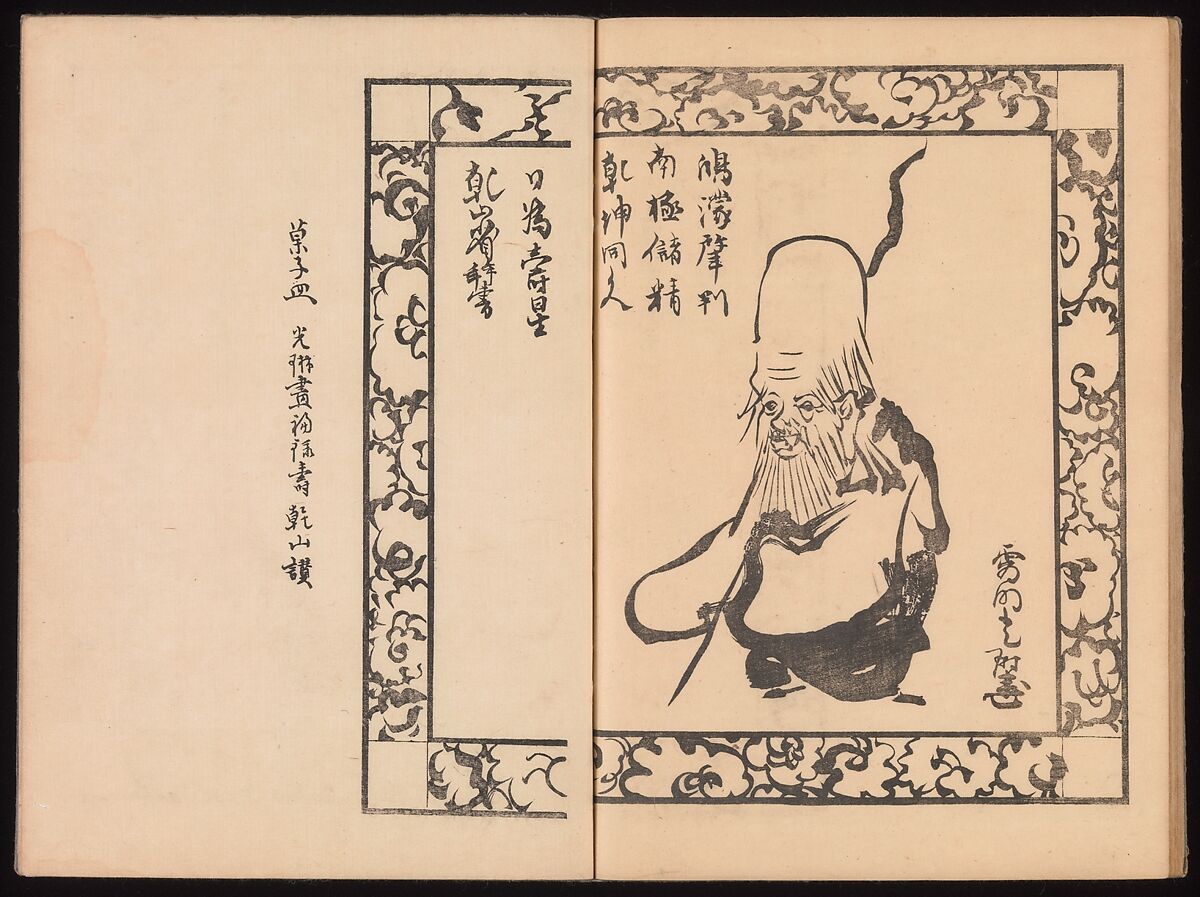 寂明光琳畫
鴻濛肇判
南極儲精
乾坤同久
曰為壽星
乾山省拜書
菓子皿 光琳畫福祿壽 乾山讃